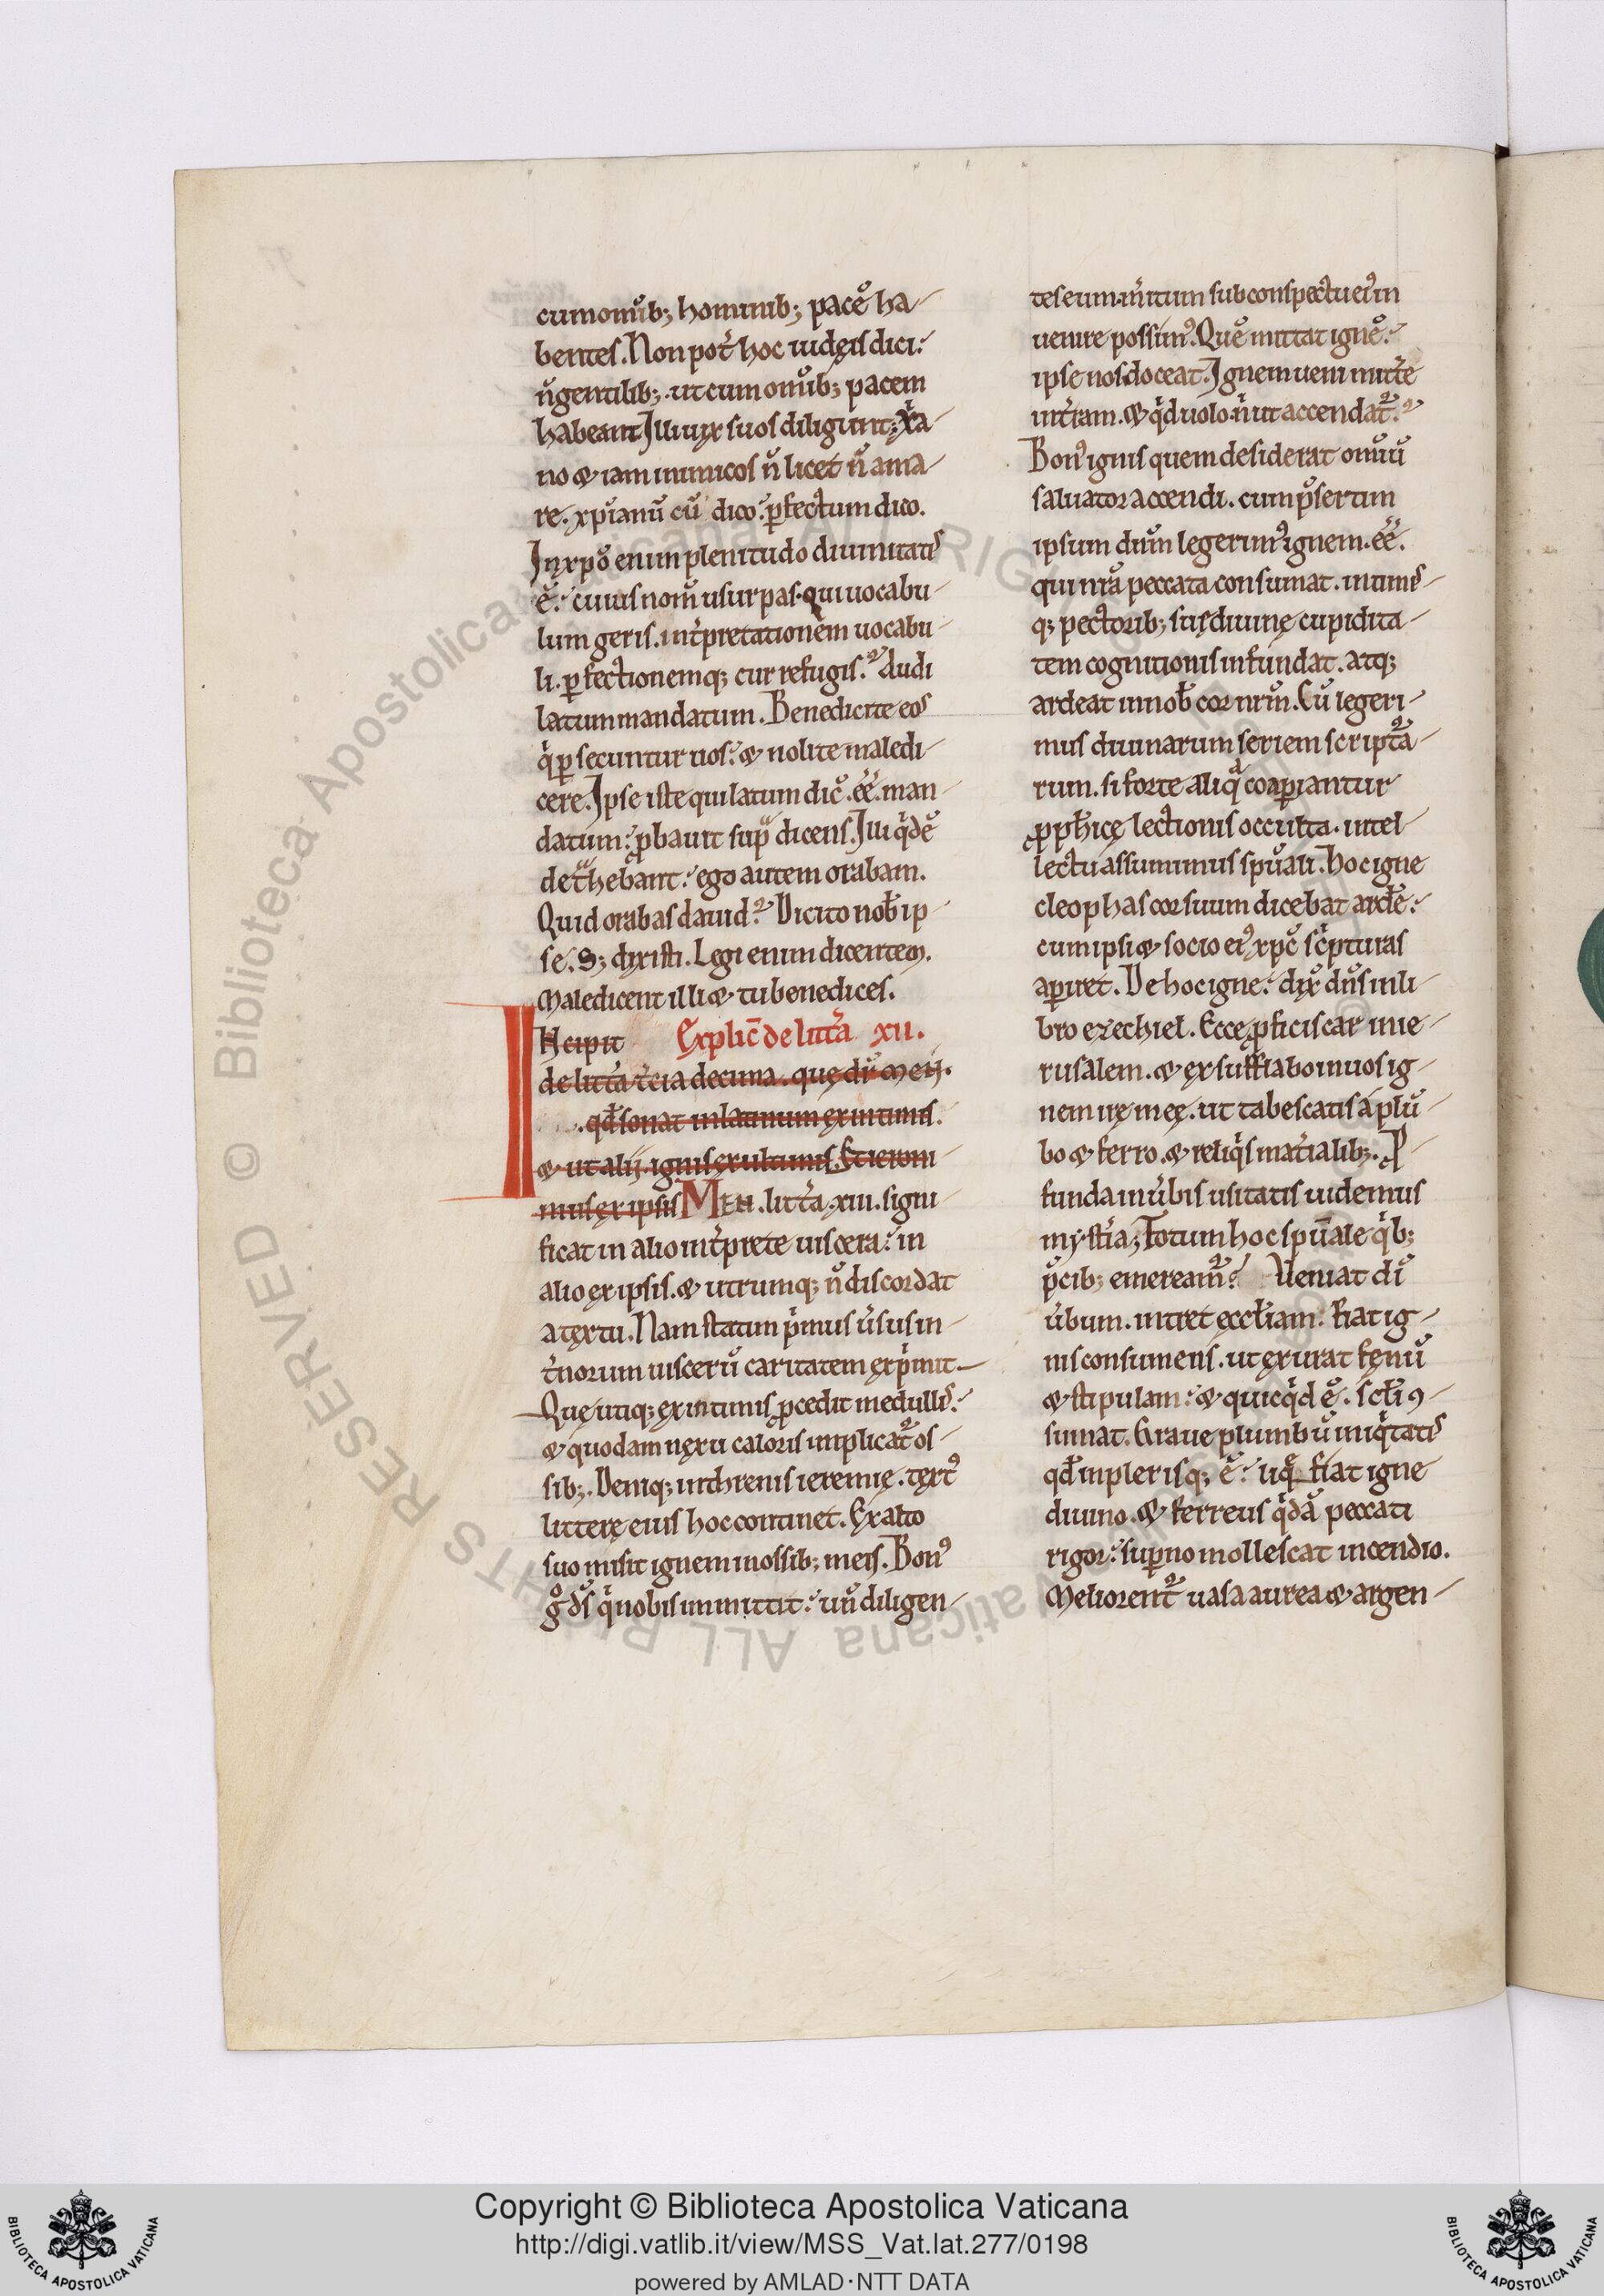 cum om̅ib; hominib; pace̅ ha-
bentes. Non pot̉ hoc iudęis dici:
n̅ gentilib;. ut cum om̅ib; pacem
habeant. Illi uix suos diligunt; xр̅ıa-
no & iam inimicos n̅ licet n̅ ama-
re. xpı̅anu̅ cu̅ dico: ꝑfectum dico.
In xpo̅ enim plenitudo diuinitatis
e̅: cuius nom̅ usurpas. qui uocabu-
lum geris. int̉pretatione̅m uocabu-
li. ꝑfectionemq; cur refugis? Audi
latum mandatum. Benedicite eos
qͥ ꝑsecuntur uos: & nolite maledi-
cere. Ipse iste qui latum dic̅ .ee̅. man-
datum: ꝓbauit supͣ dicens. Illi qͥde̅
detͣhebant: ego autem orabam.
Quid orabas dauid? Dicito nob̅ ip-
se. S; dixisti. Legi enim dicentem.
Maledicent illi & tu benedices.
INcipit Explic̅ de litt̉a xii.
de litt̉a t̉cia decima. quę dr̅ Meij.
. qd̅ sonat in latinum ex intimis.
& ut alij. ignis ex ultimis. Et ieroni-
mus ex ipsis MEN .litt̉a. xiii. signi-
ficat in alio int̉prete uiscera: in
alio ex ipsis. & utrumq; n̅ discordat
a textu. Nam statim pͥmus ṽsus in-
t̉norum uisceru̅ caritatem expͥmit
Quę utiq; ex intimis ꝓcedit medullis:
& quodam nexu caloris implicat᷑ os-
sib;. Deniq; in threnis ieremię. textꝰ
litterę eius hoc continet. Ex alto
suo misit ignem in ossib; meis. Bonꝰ
gͦ ds̅ qͥ nobis inmittit: un̅ diligen-
tes eum m̉itum sub conspectu eiꝰ in
uenire possimꝰ. Que̅ mittat igne̅:
ipse nos doceat. Ignem ueni mitt̉e
int̉ram. & qͥd uolo nͥ ut accendat᷑?
Bonꝰ ignis quem desiderat om̅iu̅
saluator accendi. cum p̅sertim
ipsum dn̅m legerimꝰ ignem .ee̅.
qui nr̅a peccata consumat. intimis-
q; pectorib; suę diuinę cupidita-
tem cognitionis infundat. atq;
ardeat in nob̅ cor nrm̅. Cu̅ legeri-
mus diuinarum seriem scriptͣ-
rum. si forte aliqͣ coaꝑiantur
ꝓph̅icę lectionis occulta. intel-
lectu assumimus spu̅ali. Hoc igne
cleophas cor suum dicebat ard̅e:
cum ipsi & socio eiꝰ xpc̅ scͥpturas
aꝑiret. De hoc igne: dix̅ dn̅s in li-
bro ezechiel. Ecce ꝓficiscar in ie-
rusalem. & exsufflabo in uos ig-
nem irę meę. ut tabescatis a plu̅-
bo & ferro. & reliqͥs mat̉ialib;. Ꝓ-
funda in ṽbis usitatis uidemus
myst̉ia; Totum hoc spu̅ale qͥb;
p̅cib; emeream᷑? Veniat di̅
ṽbum. intret eccl̅iam: fiat ig-
nis consumens. ut exurat fęnu̅
& stipulam: & quicqͥd e̅. sc̅li ꝯ-
sumat. Graue plumbu̅ iniqͥtatis
qd̅ in plerisq; e̅: liqͣ fiat igne
diuino. & ferreus qͥda̅ peccati
rigor: suꝑno mollescat incendio.
Meliorent᷑ uasa aurea & argen-
Copyright © Biblioteca Apostolica Vaticana
http://digi.vatlib.it/view/MSS_Vat.lat.277/0198
powered by AMLAD·NTT DATA
BIBLIOTECA APOSTOLICA VATICANA
BIBLIOTECA APOSTOLICA VATICANA
© Biblioteca Apostolica Vaticana ALL RIGHTS RESERVED